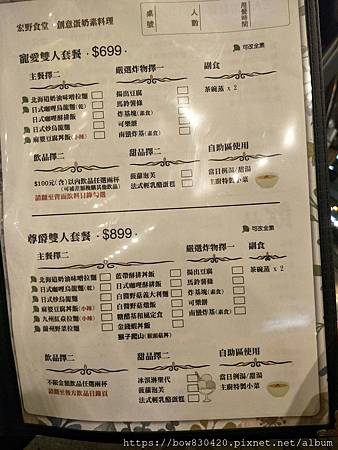 宏野食堂．創意蛋奶素料理
桌號 人數 用餐時間
寵愛雙人套餐．$699． 可改全素
主餐擇二 嚴選炸物擇一 副食
北海道奶油味噌拉麵 揚出豆腐 茶碗蒸 x 2
日式咖哩烏龍麵(乾) 馬鈴薯條
日式咖哩酥排飯 炸基塊(素食)
日式炒烏龍麵 可樂餅
麻婆豆腐丼飯(小辣) 南蠻炸基(素食)
飲品擇二 甜品擇二 自助區使用
$100元(含)以內飲品任選兩杯 菠蘿泡芙 當日例湯/甜湯
(可補差額換購其他飲品) 法式輕乳酪蛋糕 主廚特製小菜
請翻至背面飲料目錄勾選
尊爵雙人套餐．$899． 可改全素
主餐擇二 嚴選炸物擇一 副食
北海道奶油味噌拉麵 藍帶酥排丼飯 揚出豆腐 茶碗蒸 x 2
日式咖哩烏龍麵(乾) 日式咖哩酥排飯 馬鈴薯條
日式炒烏龍麵 白醬野菇義大利麵 炸基塊(素食)
麻婆豆腐丼飯(小辣) 白醬野菇燉飯 可樂餅
九州紅焱拉麵(小辣) 糖醋基柳風定食 南蠻炸基(素食)
蘭州野菜拉麵 金錢蝦丼飯
猴子爬山(猴頭菇丼)
飲品擇二 甜品擇二 自助區使用
不限金額飲品任選兩杯 冰淇淋聖代 當日例湯/甜湯
請翻至後方飲品目錄頁 菠蘿泡芙 主廚特製小菜
法式輕乳酪蛋糕
https://bow830420.pixnet.net/album